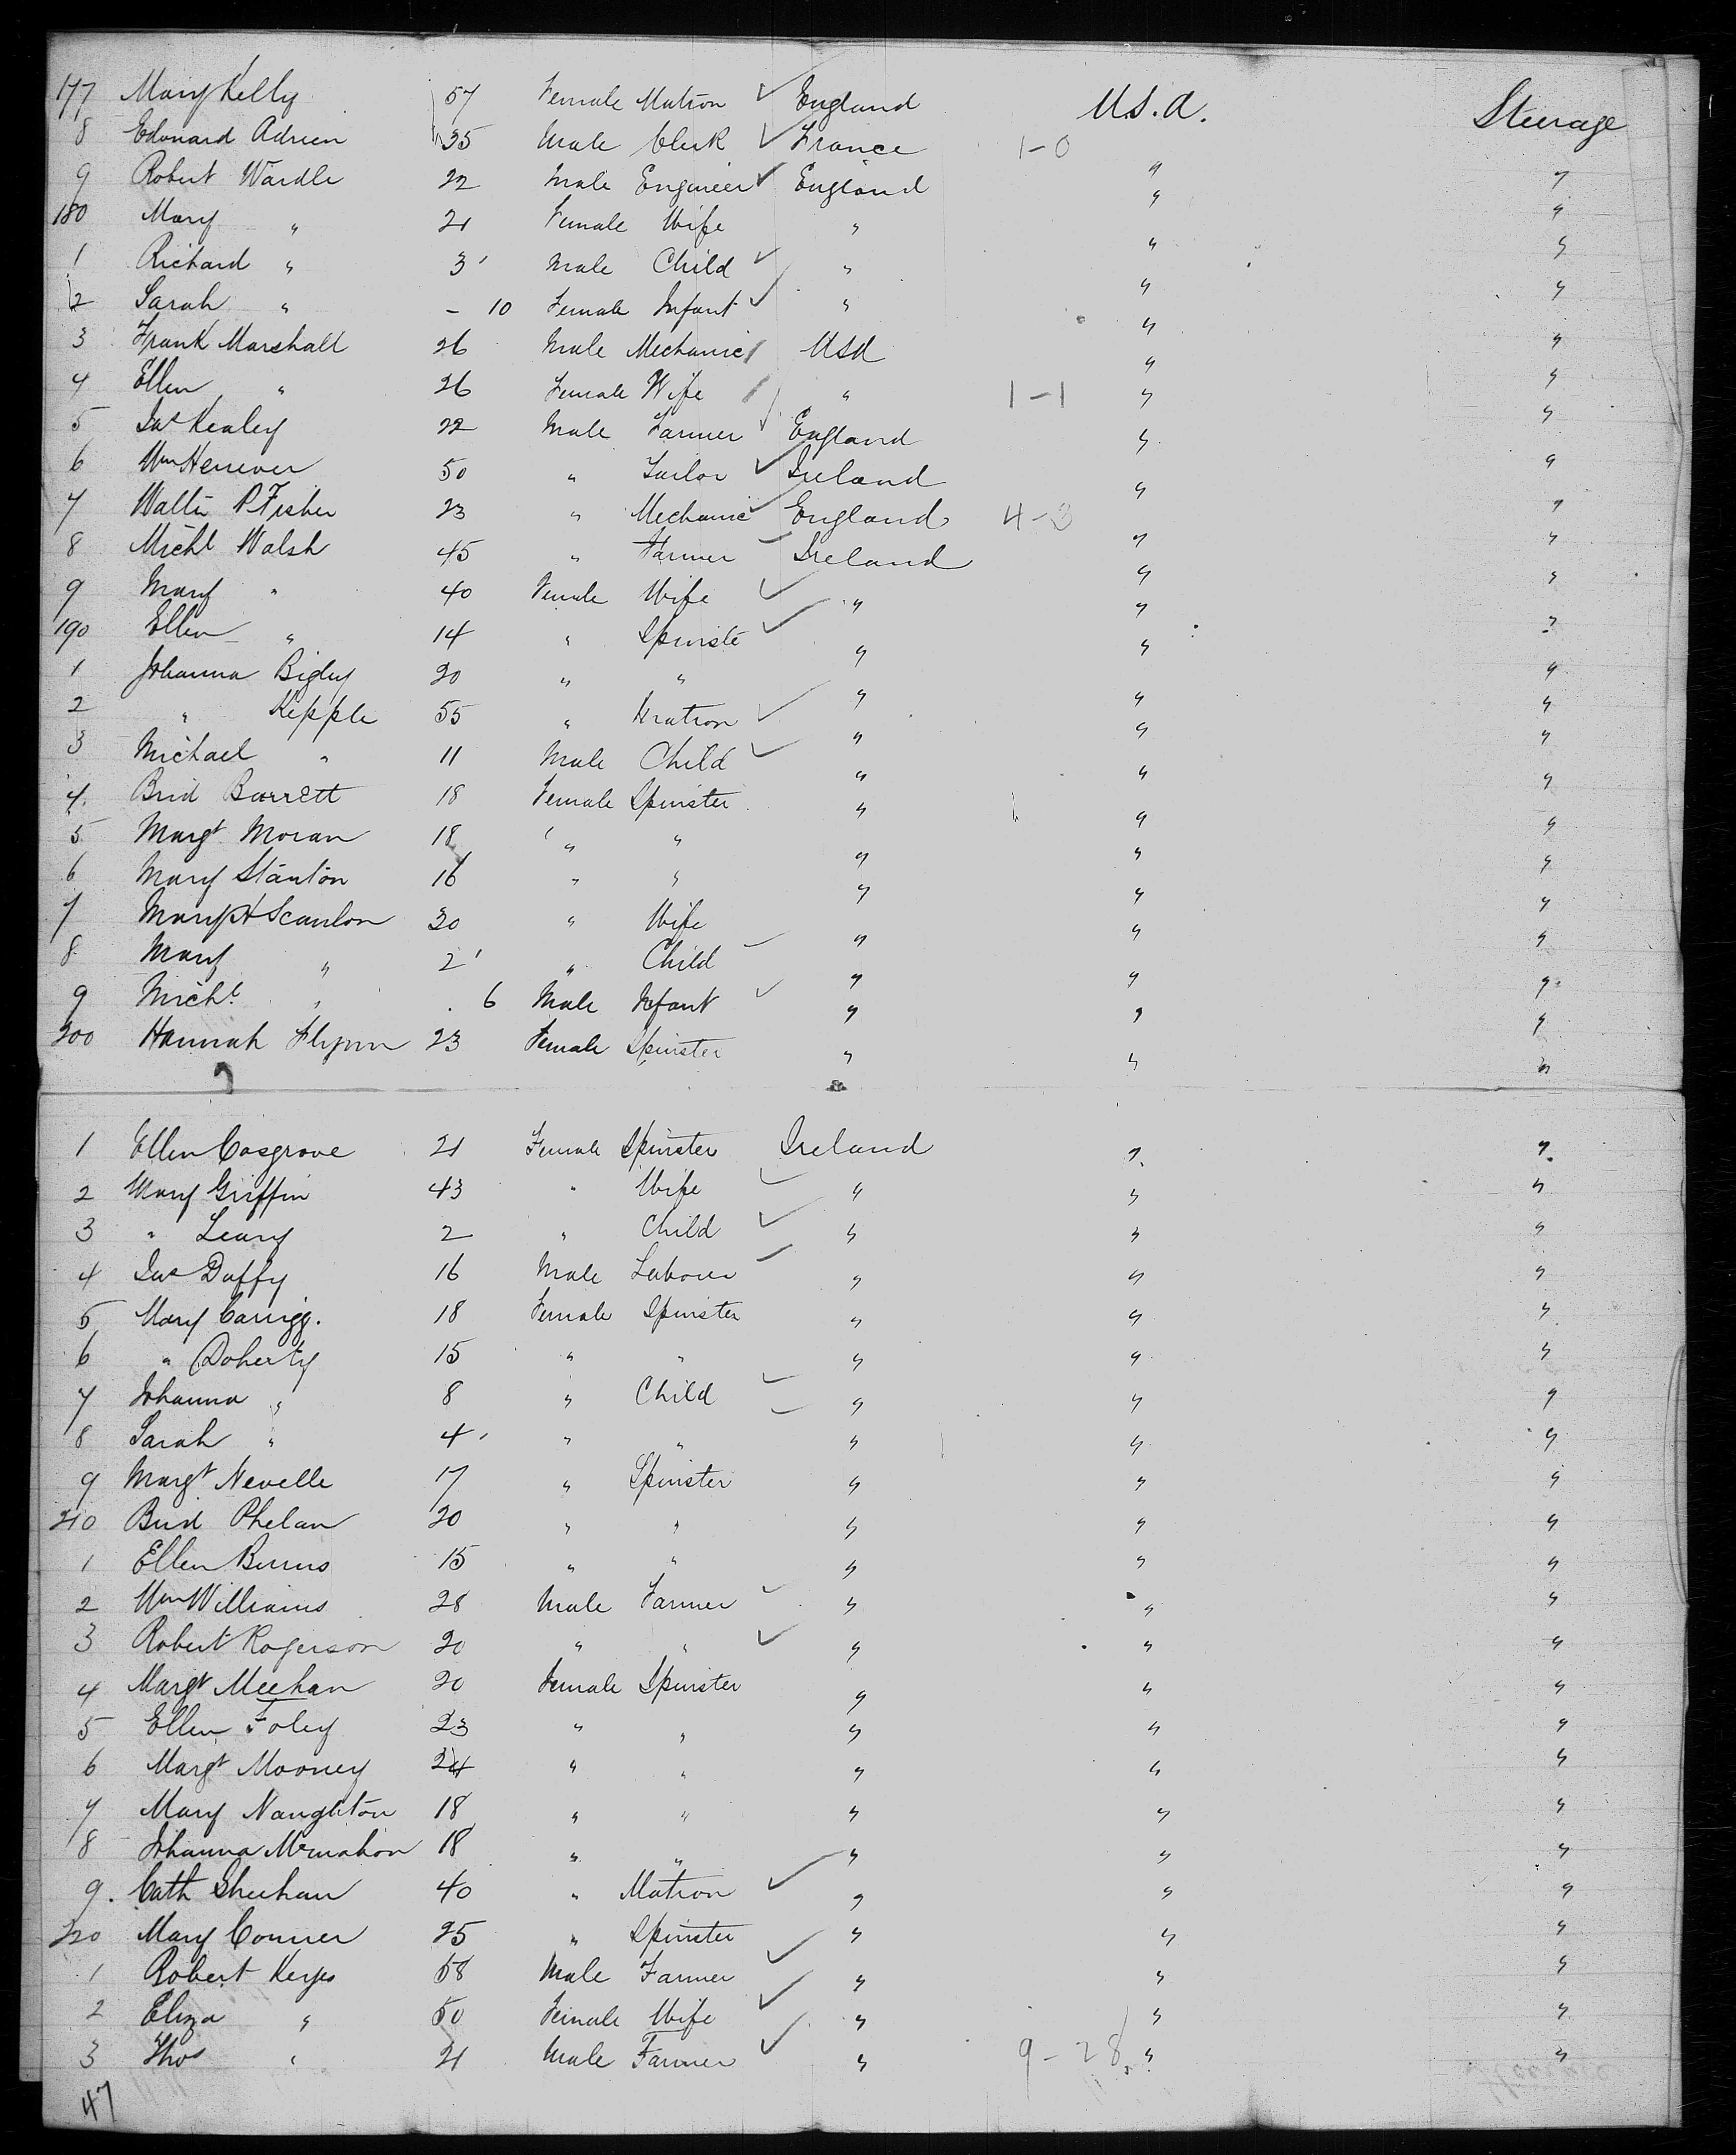 177 Mary Kelly 57 Female Matron England U.S.A. Steerage
8 Edouard Adrien 35 Male Clerk France 1-0 " "
9 Robert Wardle 22 Male Engineer England " "
180 Mary " 21 Female Wife " " "
1 Richard " 3 Male Child " " "
2 Sarah " - 10 Female Infant " " "
3 Frank Marshall 26 Male Mechanic USA " "
4 Ellen " 26 Female Wife " 1-1 " "
5 Jas Kealey 22 Male Farmer England " "
6 Wm 50 " Tailor Ireland " "
7 Walter P Fisher 23 " Mechanic England 4-3 " "
8 Michl Walsh 45 " Farmer Ireland " "
9 Mary " 40 Female Wife " " "
190 Ellen " 14 " Spinste " " "
1 Johanna Bigley 20 " " " " "
2 " Kepple 55 " Matron " " "
3 Michael " 11 Male Child " " "
4 Brid Barrett 18 Female Spinster " " "
5 Margt Moran 18 " " " " "
6 Mary Stanton 16 " " " " "
7 Mary A Scanlon 30 " Wife " " "
8 Mary " 2 " Child " " "
9 Michl " 6 Male Infant " " "
200 Hannah Flynn 23 Female Spinster " " "
1 Ellen Cosgrove 21 Female Spinster Ireland " "
2 Mary Griffin 43 " Wife " " "
3 " Leary 2 " Child " " "
4 Jas Duffy 16 Male Labourer " " "
5 Mary Carrigg. 18 Female Spinster " " "
6 " Doherty 15 " " " " "
7 Johanna " 8 " Child " " "
8 Sarah " 4 " " " " "
9 Margt Nevelle 17 " Spinster " " "
210 Brid Phelan 20 " " " " "
1 Ellen Burns 15 " " " " "
2 Wm Williams 28 Male Farmer " " "
3 Robert Rogerson 20 " " " " "
4 Margt Meehan 20 Female Spinster " " "
5 Ellen Foley 23 " " " " "
6 Margt Mooney 24 " " " " "
7 Mary Naughton 18 " " " " "
8 Johanna McMahon 18 " " " " "
9. Cath Sheehan 40 " Matron " " "
220 Mary Conner 25 " Spinster " " "
1 Robert Keyes 58 Male Farmer " " "
2 Eliza " 50 Female Wife " " "
3 Thos " 21 Male Farmer " 9-28 " "
47